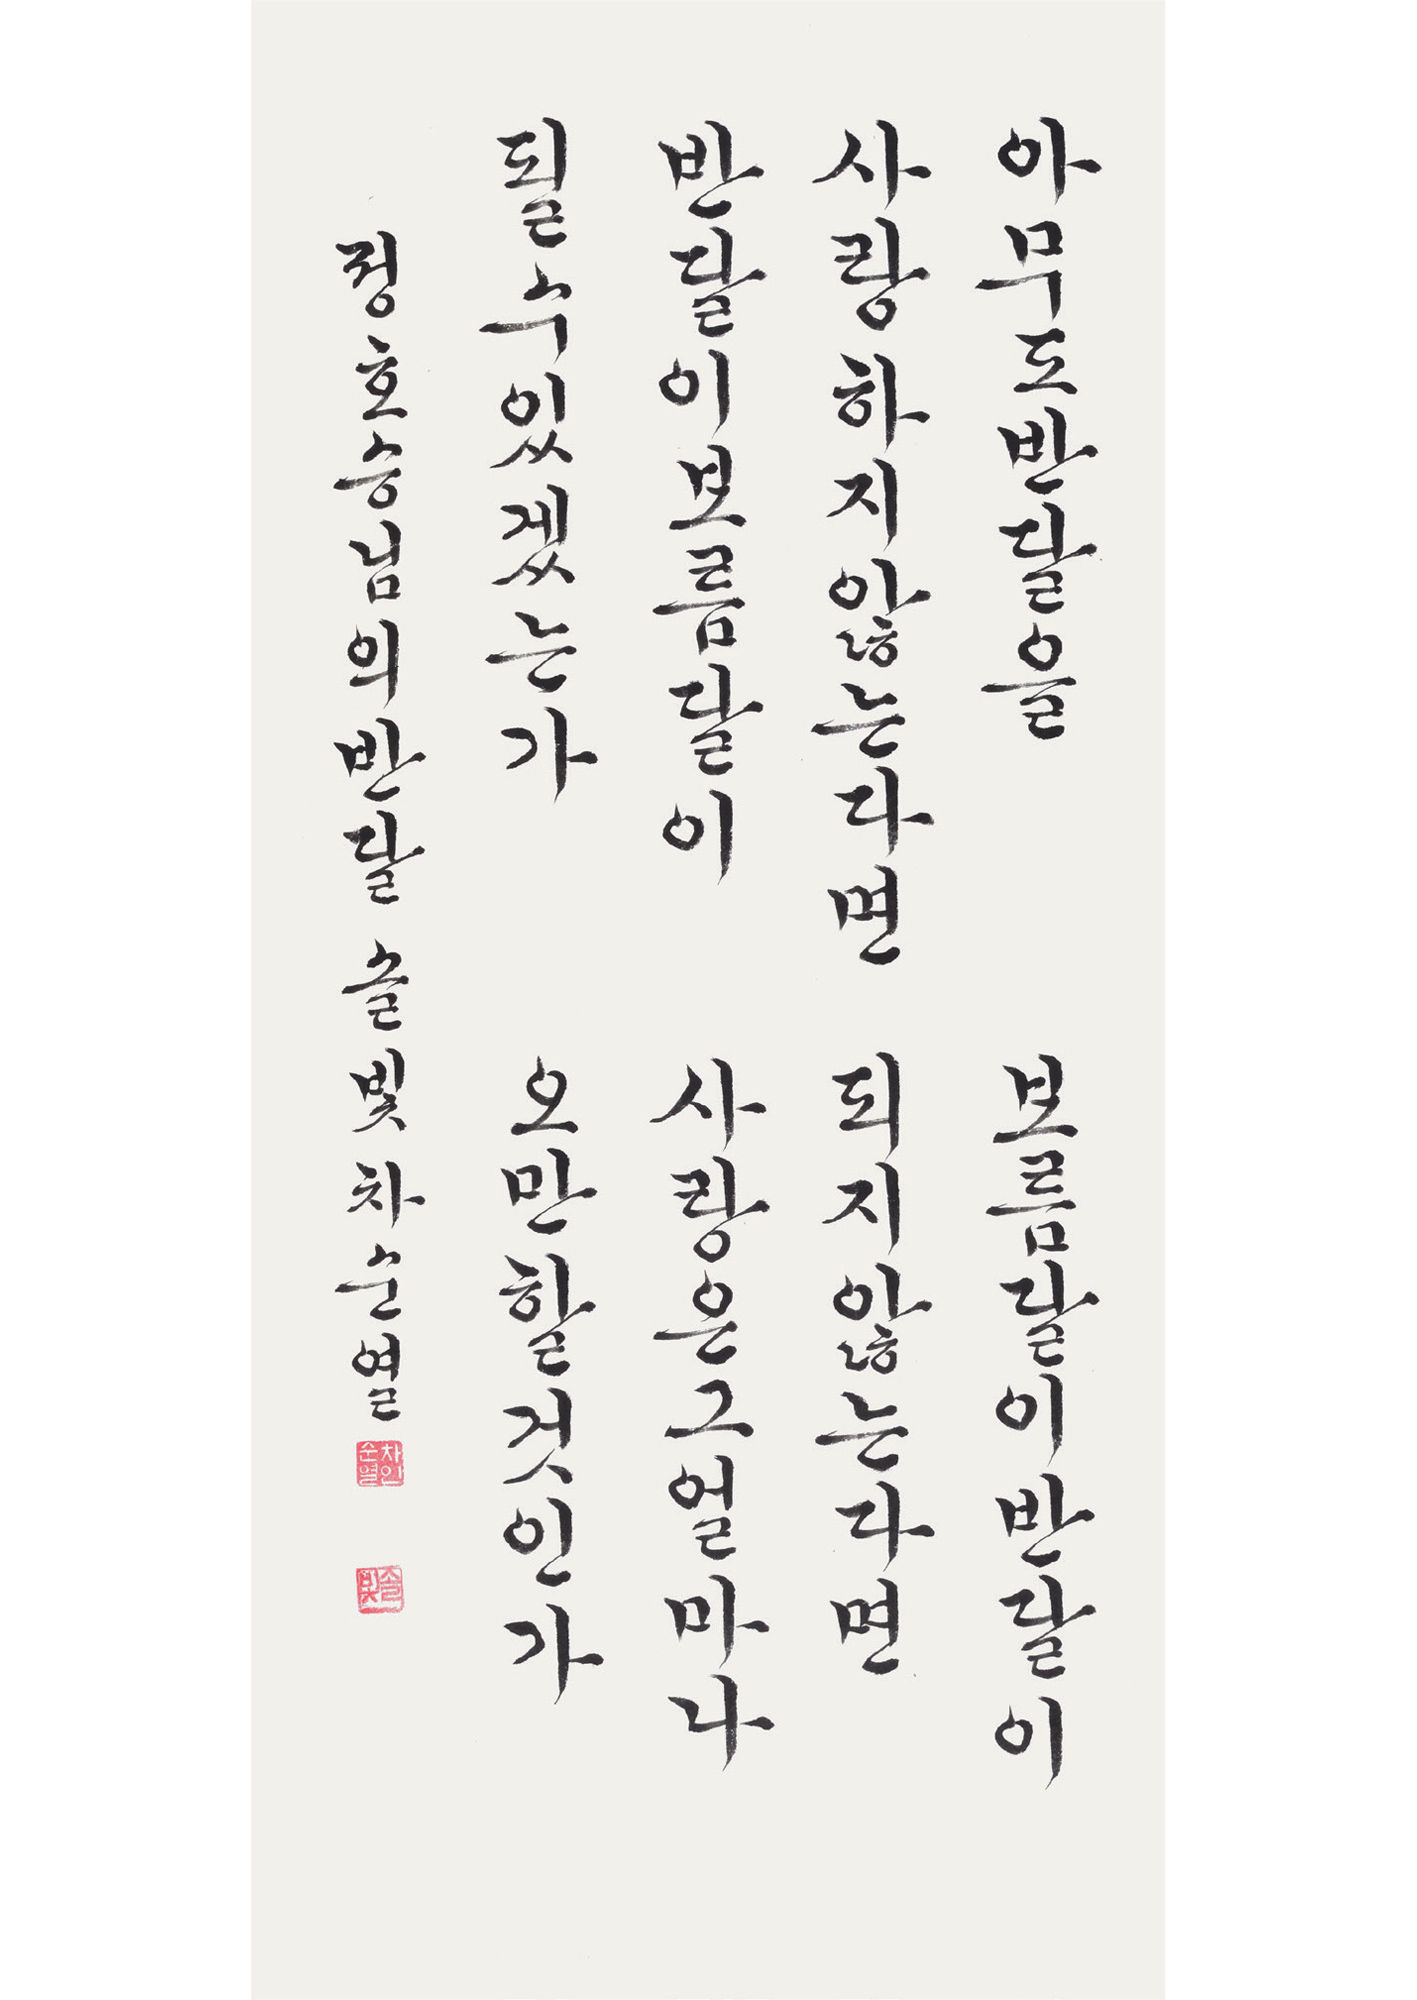 아무도반달을
사랑하지않는다면
반달이보름달이
될수있겠는가
보름달이반달이
되지않는다면
사랑은그얼마나
오만할것인가
정호승님의반달 솔빛 차순열
차인
순열
솔빛